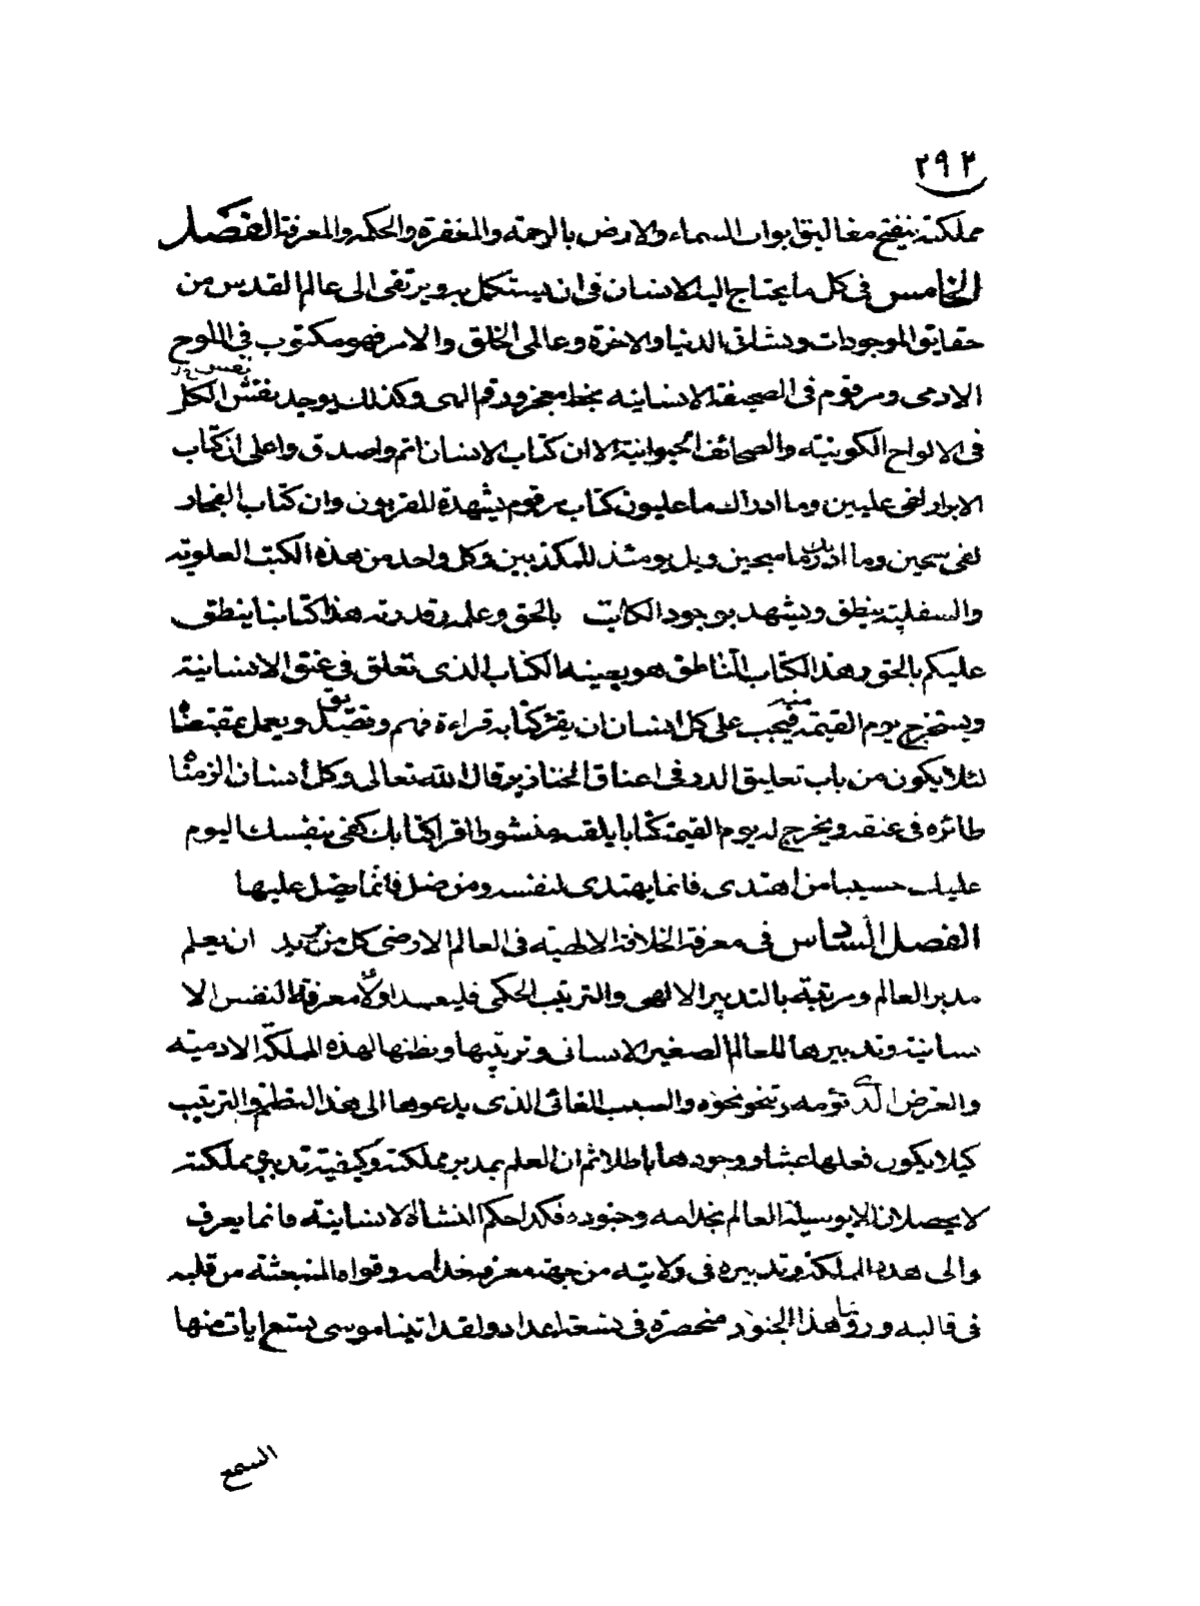 ٢٩٣
مملكته ينفتح مغاليق ابواب السماء والارض بالرحمة والمغفرة والحكمة والمعرفة الفصل
الخامس فى كل ما يحتاج اليه الانسان فى ان يستكمل به ويرتقى الى عالم القدس من
حقايق الموجودات ونشأتى الدنيا والاخرة وعالمى الخلق والامر فهو مكتوب فى اللوح
الادمى ومرقوم فى الصحيفة الانسانيه بخط معجز ورقم الهى وكذلك يوجد نقش الكل
فى الالواح الكونيته والصحائف الحيوانية الا ان كتاب الانسان اتم واصدق واعلى ان كتاب
الابرار لفى عليين وما ادراك ما عليون كتاب مرقوم يشهدة المقربون وان كتاب الفجار
لفى سجين وما ادريك ما سجين ويل يومئذ للمكذبين وكل واحد من هذه الكتب العلويته
والسفليته ينطق ويشهد بوجود الكاتب بالحق وعلمه وقدرته هذا كتابنا ينطق
عليكم بالحق وهذا الكتاب الناطق هو بعينه الكتاب الذى تعلق فى عنق الانسانيته
ويستخرج يوم القيمة منه فيجب على كل انسان ان يقرء كتابه قراءة فهم وتصديق ويعمل بمقتضاه
لئلا يكون من باب تعليق الدر فى اعناق الخنازير قال الله تعالى وكل انسان الزمناه
طائره فى عنقه ويخرج له يوم القيمة كتابا يلقيه منشورا اقرا كتابك كفى بنفسك اليوم
عليك حسيبا من اهتدى فانما يهتدى لنفسه ومن ضل فانما يضل عليها
الفصل السادس فى معرفة الخلافة الالهيته فى العالم الارضى كل من يريد ان يعلم
مدبر العالم ومرتبته بالتدبير الالهى والترتيب الحكمى فليعمد اولا معرفة النفس الا
نسانيته وتدبيرها للعالم الصغير الانسانى وترتيبها ونظنها لهذه المملكة الادميته
والغرض الذى تؤمه وتنحو نحوه والسبب الغائى الذى يدعوها الى هذا النظم والترتيب
كيلا يكون فعلها عبثا ووجودها باطلا ثم ان العلم بمدبر مملكته وكيفيته تدبيره مملكته
لا يحصلان الا بوسيلة العالم بخدامه وجنوده فكذا حكم النشاة الانسانيته فانما يعرف
والى هذه المملكة وتدبيره فى ولايته من جهته معرفه خدامه وقواه المنبعثة من قلبه
فى قالبه و هذا الجنود منحصرة فى تسعة اعداد ولقد اتينا موسى تسع ايات منها
السمع